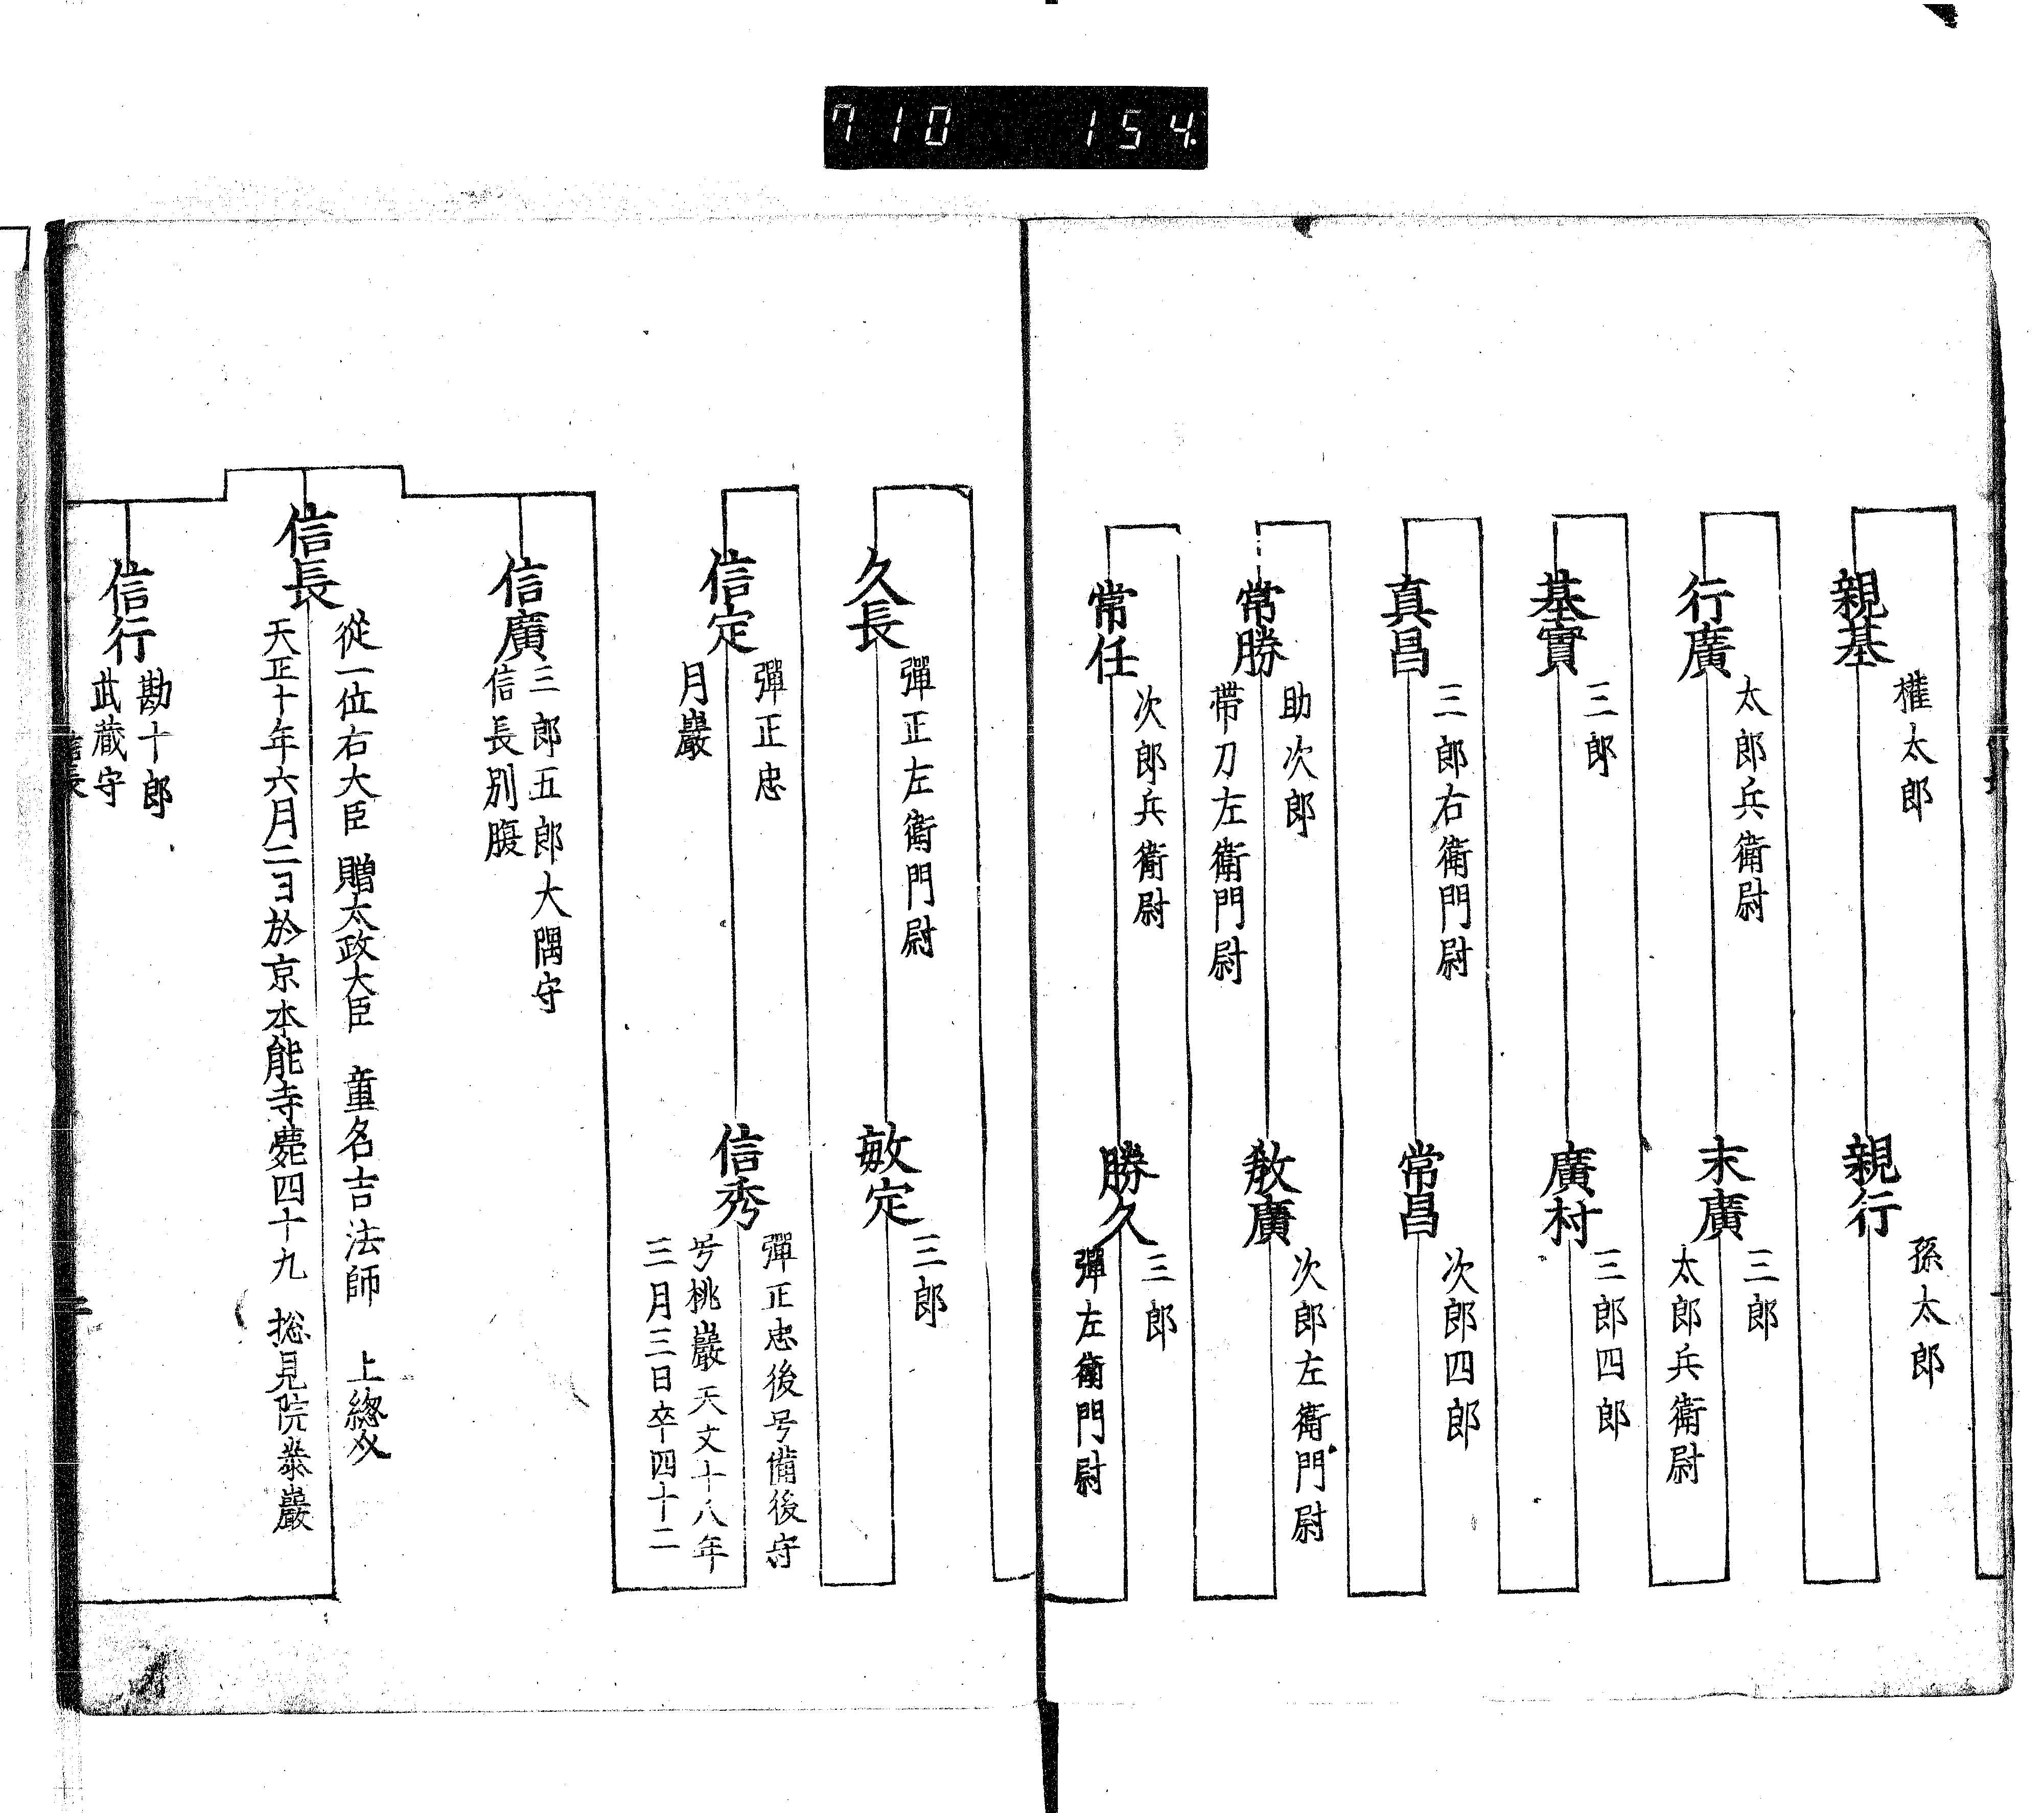 710 154
親基
權太郎
親行
孫太郎
行廣
太郎兵衛尉
末廣
三郎
太郎兵衛尉
基實
三郎
廣村
三郎四郎
真昌
三郎右衛門尉
常昌
次郎四郎
常勝
助次郎
帶刀左衛門尉
教廣
次郎左衛門尉
常任
次郎兵衛尉
勝久
三郎
彈左衛門尉
久長
彈正左衛門尉
敏定
三郎
信定
彈正忠
月巖
信秀
彈正忠後号備後守
号桃巖天文十八年
三月三日卒四十二
信廣
三郎五郎大隅守
信長別腹
信長
從一位右大臣 贈太政大臣 童名吉法師 上總介
天正十年六月二日於京本能寺薨四十九 捴見院泰巖
信行
勘十郎
武藏守